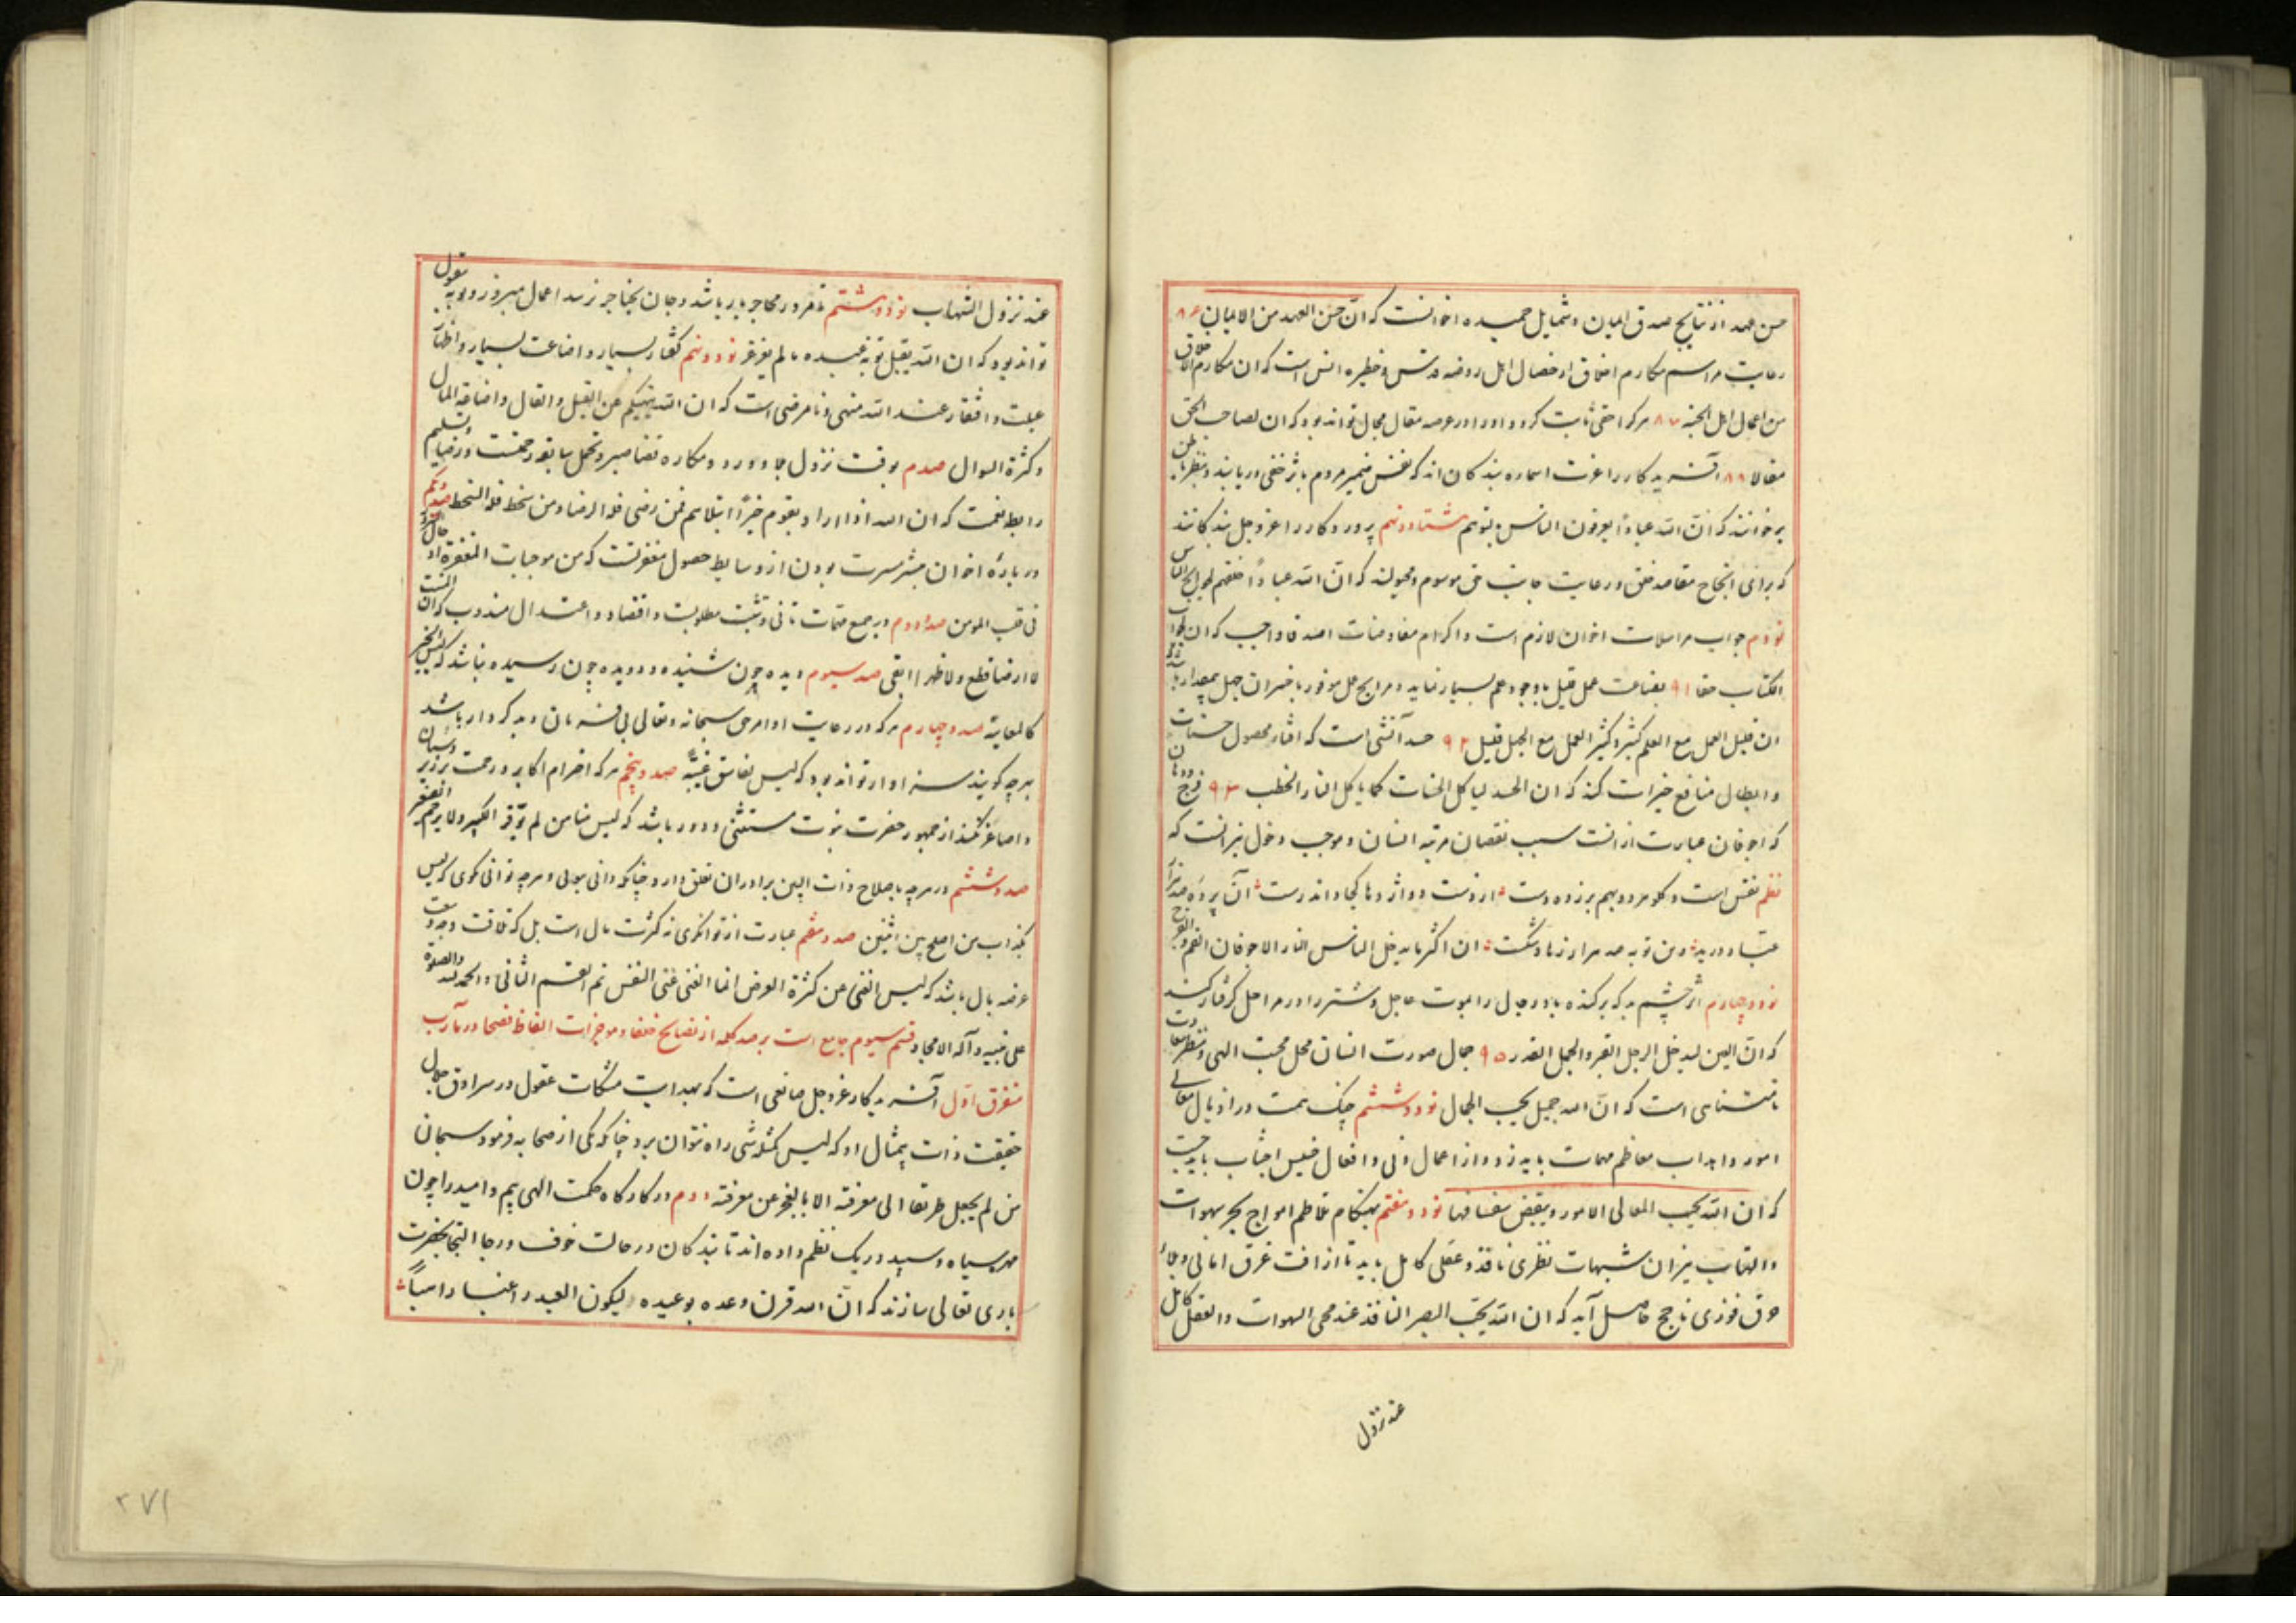 حسن عهد از نتایج صدق ایمان و شمایل حمیده اخوانست که انّ حسن العهد من الایمان ۸۶
رعایت مراسم مکارم اخلاق از خصال اهل روضه قدس و خطیره انس است که ان مکارم الاخلاق
من اعمال اهل الجنة ۸۷ هرکرا حقی ثابت کردد او را در عرصه مقال مجال تواند بود که ان لصاحب الحق
مقالا ۸۸ آفریدکار را عزت اسماره بندکان اند که نفس ضمیر مردم باثر خفی دریابند و بنظر باطن
برخوانند که انّ الله عباداً یعرفون الناس بتوسم هشتاد و نهم پروردکار را عز و جل بندکانند
که برای انجاح مقاصد خلق و رعایت جانب حق موسوم و مجبولند که انّ الله عباداً خلقهم لحوایج الناس
نودم جواب مراسلات اخوان لازم است و اکرام مفاوضات اصدقا واجب که ان لجواب
الکتاب حقا ۹۱ بضاعت عمل قلیل با وجود علم بسیار نماید و مرابح عمل موفور با خسران جهل بمقدار باشد
ان قلیل العمل مع العلم کثیر و کثیر العمل مع الجهل قلیل ۹۲ حسد آتشی است که افناء محصول حسنات
و ابطال منافع خیرات کند که ان الحسد لیاکل الحسنات کما یاکل النار الحطب ۹۳ فرج و دهان
که اجوفان عبارت از انست سبب نقصان مرتبه انسان و موجب دخول نیرانست که
نظم نفس است و کلو مردو بهم برزده دست از دست دو اژدها کجا داند رست آن پرده صد هزار
عبّاد درید وین توبه صد هزار زهاد شکست ان اکثر ما یدخل الناس النار الاجوفان الفم و الفرج
نود و چهارم اثر چشم بد که برکننده باد رجال را بموت عاجل و شتر را در مراحل کرفتار کند
که انّ العین لیدخل الرجل القبر و الجمل القدر ۹۵ جمال صورت انسان محل محبت الهی و منظر سعادت
نامتناهی است که انّ الله جمیل یحب الجمال نود و ششم چنک همت در اذیال معالی
امور و اهداب معاظم مهمات باید زد و از اعمال دنی و افعال خسیس اجتناب باید جست
که ان الله یحب المعالی الامور و یبغض سفسافها نود و هفتم بهنکام تلاطم امواج بحر شهوات
و التهاب نیران شبهات نظری نافذ و عقلی کامل باید تا از افت غرق امانی و بلاء
حرق فوزی ناجح حاصل آید که ان الله یحبّ البصر النافذ عند مجی الشهوات و العقل الکامل
عند نزول
عند نزول الشبهات نود و هشتم تا فرو در محاجر بار باشد و جان بحناجر نرسد اعمال مبرور و توبه مقبول
تواند بود که ان الله یقبل توبة عبده ما لم یغرغر نود و نهم کفتار بسیار و اضاعت بسیار و اظهار
علت و افتقار عند الله منهی و نامرضی است که ان الله ینهیکم عن القیل و القال و اضاعة المال
و کثرة السوال صدم بوقت نزول بلا و ورود مکاره قضا صبر و تحمل سابقه رحمت و رضا و تسلیم
رابط نعمت که ان الله اذا اراد بقوم خیراً ابتلاهم فمن رضی فله الرضا و من سخط فله السخط صد و یکم
درباره اخوان مبشر مسرت بودن از وسایط حصول مغفرتست که من موجبات المغفرة ادخال السرور
فی قلب المومن صد و دوم در جمیع مهمات تانی و تثبت مطلوبست و اقتصاد و اعتدال مندوب که ان المنبت
لا ارضا قطع و لا ظهرا ابقی صد سیوم دیده چون شنیده و دویده چون رسیده نباشد که لیس الخبر
کالمعاینة صد و چهارم هرکه در رعایت اوامر حق سبحانه و تعالی بی فرمان و بدکردار باشد
هرچه کویند سزاوار تواند بود که لیس لفاسق غیبة صد و پنجم هرکه احترام اکابر و رحمت بر زیردستان
و اصاغر نکند از جمهور حضرت نبوت مستثنی و دور باشد که لیس منا من لم یوقر الکبیر و لا یرحم الصغیر
صد و ششم در هرچه باصلاح ذات البین برادران تعلق دارد چنانکه دانی بدلی و هرچه توانی کوی که لیس
بکذاب من اصلح بین اثنین صد و هفتم عبارت از توانکری نه کثرت مال است بل که فاقت وجد و سعت
عرضه بال باشد که لیس الغنی عن کثرة العرض انما الغنی غنی النفس تم القسم الثانی و الحمد لله و الصلوة
علی نبیه و آله الامجاد قسم سیوم جامع است بر صد کلمه از نصایح خلفا و موجزات الفاظ فصحا در مآرب
متفرق اوّل آفریدکار عز و جل صانعی است که بهدایت مشکات عقول در سرادق جلال
حقیقت ذات بیمثال او که لیس کمثله شی راه نتوان برد چنانکه یکی از صحابه فرمود سبحان
من لم یجعل طریقا الی معرفته الا بالعجز عن معرفته دوم در کارکاه حکمت الهی بیم و امید را چون
مهر سیاه و سپید در یک نظم داده اند تا بندکان در حالت خوف و رجا التجا بحضرت
باری تعالی سازند که انّ الله قرن وعده بوعیده لیکون العبد راغبا راهباً
۲۷۱